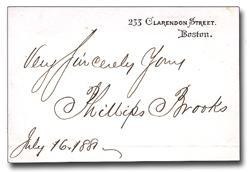 233 CLARENDON STREET.
Boston.
Very Sincerely Yours
Phillips Brooks
July 16.